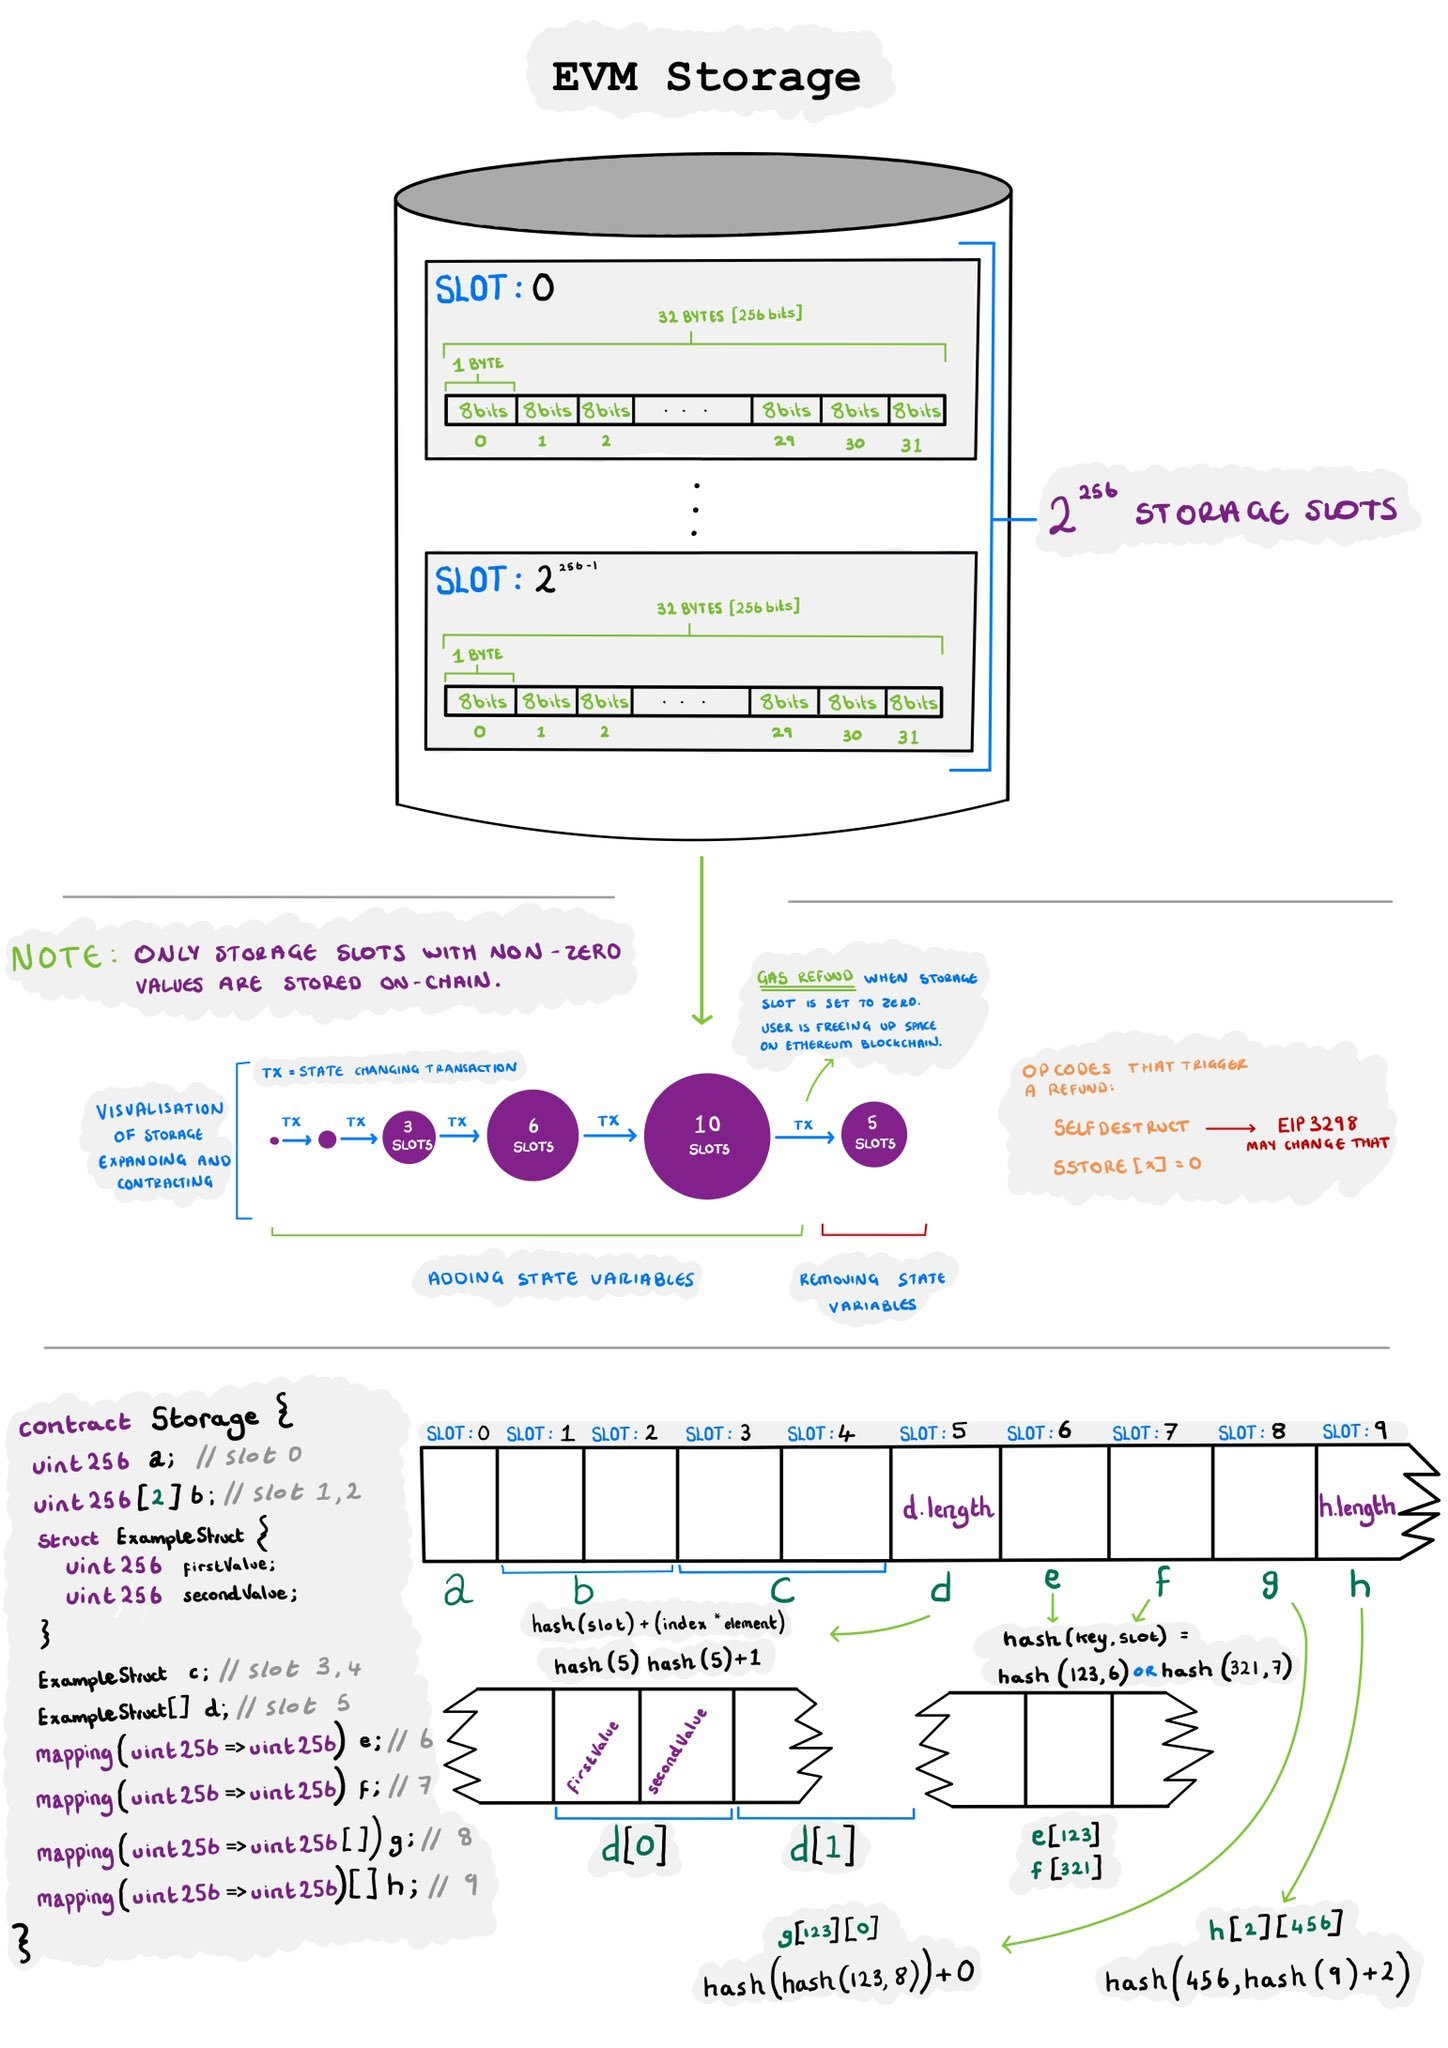 EVM Storage
SLOT: 0
32 BYTES [256 bits]
1 BYTE
8bits 8bits 8bits . . . 8bits 8bits 8bits
0 1 2 29 30 31
2^256 STORAGE SLOTS
SLOT: 2^256-1
32 BYTES [256 bits]
1 BYTE
8bits 8bits 8bits . . . 8bits 8bits 8bits
0 1 2 29 30 31
NOTE: ONLY STORAGE SLOTS WITH NON-ZERO
VALUES ARE STORED ON-CHAIN.
GAS REFUND WHEN STORAGE
SLOT IS SET TO ZERO.
USER IS FREEING UP SPACE
ON ETHEREUM BLOCKCHAIN.
VISUALISATION
OF STORAGE
EXPANDING AND
CONTRACTING
TX = STATE CHANGING TRANSACTION
TX TX TX TX TX
3
SLOTS
6
SLOTS
10
SLOTS
5
SLOTS
OPCODES THAT TRIGGER
A REFUND:
SELFDESTRUCT EIP3298
MAY CHANGE THAT
SSTORE[x] = 0
ADDING STATE VARIABLES
REMOVING STATE
VARIABLES
contract Storage {
uint256 a; // slot 0
uint256[2] b; // slot 1,2
struct ExampleStruct {
uint256 firstValue;
uint256 secondValue;
}
ExampleStruct c; // slot 3,4
ExampleStruct[] d; // slot 5
mapping(uint256 => uint256) e; // 6
mapping(uint256 => uint256) f; // 7
mapping(uint256 => uint256[]) g; // 8
mapping(uint256 => uint256)[] h; // 9
}
SLOT: 0 SLOT: 1 SLOT: 2 SLOT: 3 SLOT: 4 SLOT: 5 SLOT: 6 SLOT: 7 SLOT: 8 SLOT: 9
d.length h.length
a b c d e f g h
hash(slot) + (index * element)
hash(5) hash(5)+1
hash(key, slot) =
hash(123,6) OR hash(321,7)
firstValue secondValue
d[0] d[1]
e[123]
f[321]
g[123][0]
hash(hash(123,8))+0
h[2][456]
hash(456,hash(9)+2)